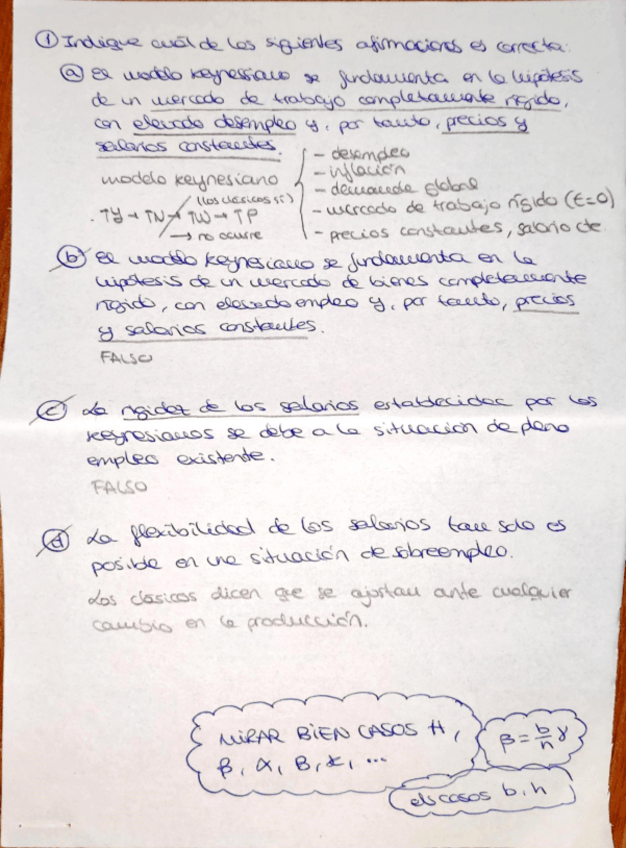 ① Indique cuál de las siguientes afirmaciones es correcta:
ⓐ El modelo keynesiano se fundamenta en la hipótesis
de un mercado de trabajo completamente rígido,
con elevado desempleo y, por tanto, precios y
salarios constantes.
modelo keynesiano
- desempleo
- inflación
- demanda global
- mercado de trabajo rígido (ε=0)
- precios constantes, salario cte
(los clásicos sí)
. ↑Y → ↑N → ↑W → ↑P
→ no ocurre
ⓑ El modelo keynesiano se fundamenta en la
hipótesis de un mercado de bienes completamente
rígido, con elevado empleo y, por tanto, precios
y salarios constantes.
FALSO
ⓒ La rigidez de los salarios establecidos por los
keynesianos se debe a la situación de pleno
empleo existente.
FALSO
ⓓ La flexibilidad de los salarios tan solo es
posible en una situación de sobreempleo.
Los clásicos dicen que se ajustan ante cualquier
cambio en la producción.
MIRAR BIEN CASOS H,
β, α, B, t, ...
β = b/h γ
els casos b, h